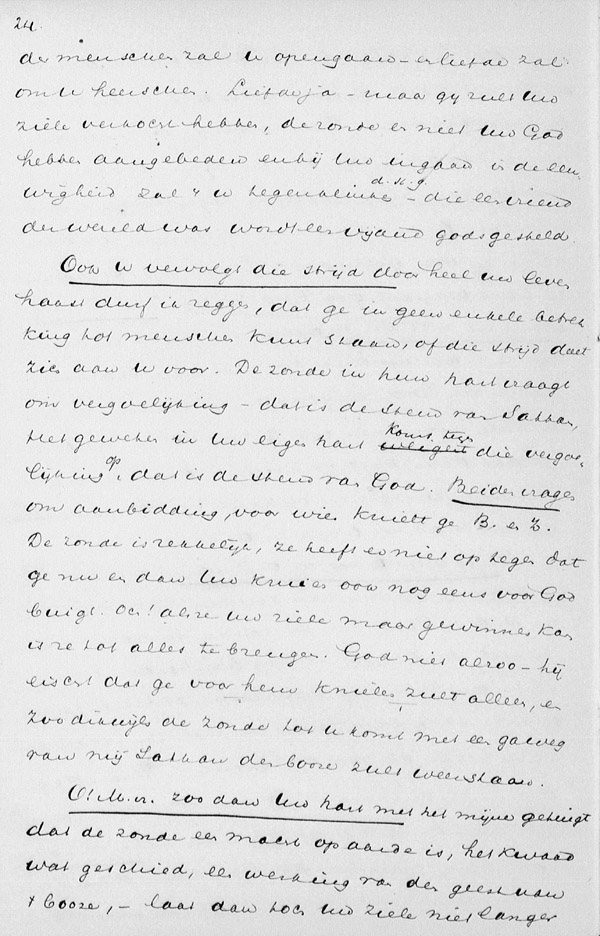 24.
der menschen zal u opengaan – en liefde zal
om u heerschen. Liefde ja – maar gij zult uw
ziele verkocht hebben, de zonde en niet uw God
hebben aangebeden en bij uw ingaan in de eeu-
wigheid zal 't u tegenklinken d. st. g. – die een vriend
der wereld was wordt een vijand gods gesteld.
Ook u vervolgt die strijd door heel uw leven
haast durf ik zeggen, dat ge in geen enkele betrek
king tot menschen kunt staan, of die strijd doet
zich aan u voor. De zonde in hun hart vraagt
om vergoelijking – dat is de stem van Sathan,
Het geweten in uw eigen hart komt tegen die vergoe-
lijking op, dat is de stem van God. Beiden vragen
om aanbidding, voor wien knielt ge B. en Z.
De zonde is rekkelijk, ze heeft er niet op tegen dat
ge nu en dan uw knieën ook nog eens voor God
buigt. Och! als ze uw ziele maar gewinnen kan
is ze tot alles te brengen. God niet alzoo – hij
eischt dat ge voor hem knielen zult alleen, en
zoo dikwijls de zonde tot u komt met een ga weg
van mij Sathan den booze zult weerstaan.
O! M. v. zoo dan uw hart met het mijne getuigt
dat de zonde een macht op aarde is, het kwaad
wat geschied, een werking van den geest van
't booze, – laat dan toch uw ziele niet langer